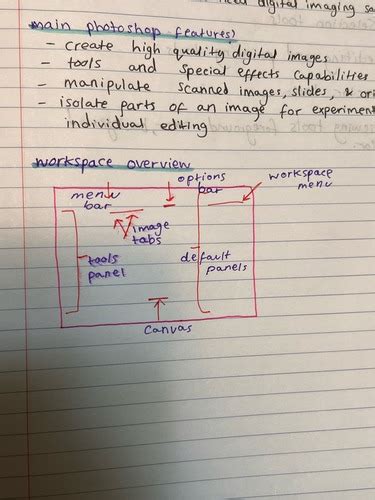 digital imaging
main photoshop features:
- create high quality digital images
- tools and special effects capabilities
- manipulate scanned images, slides, & ori
- isolate parts of an image for experiment
individual editing
workspace overview
menu bar
options bar
workspace menu
image tabs
tools panel
default panels
canvas